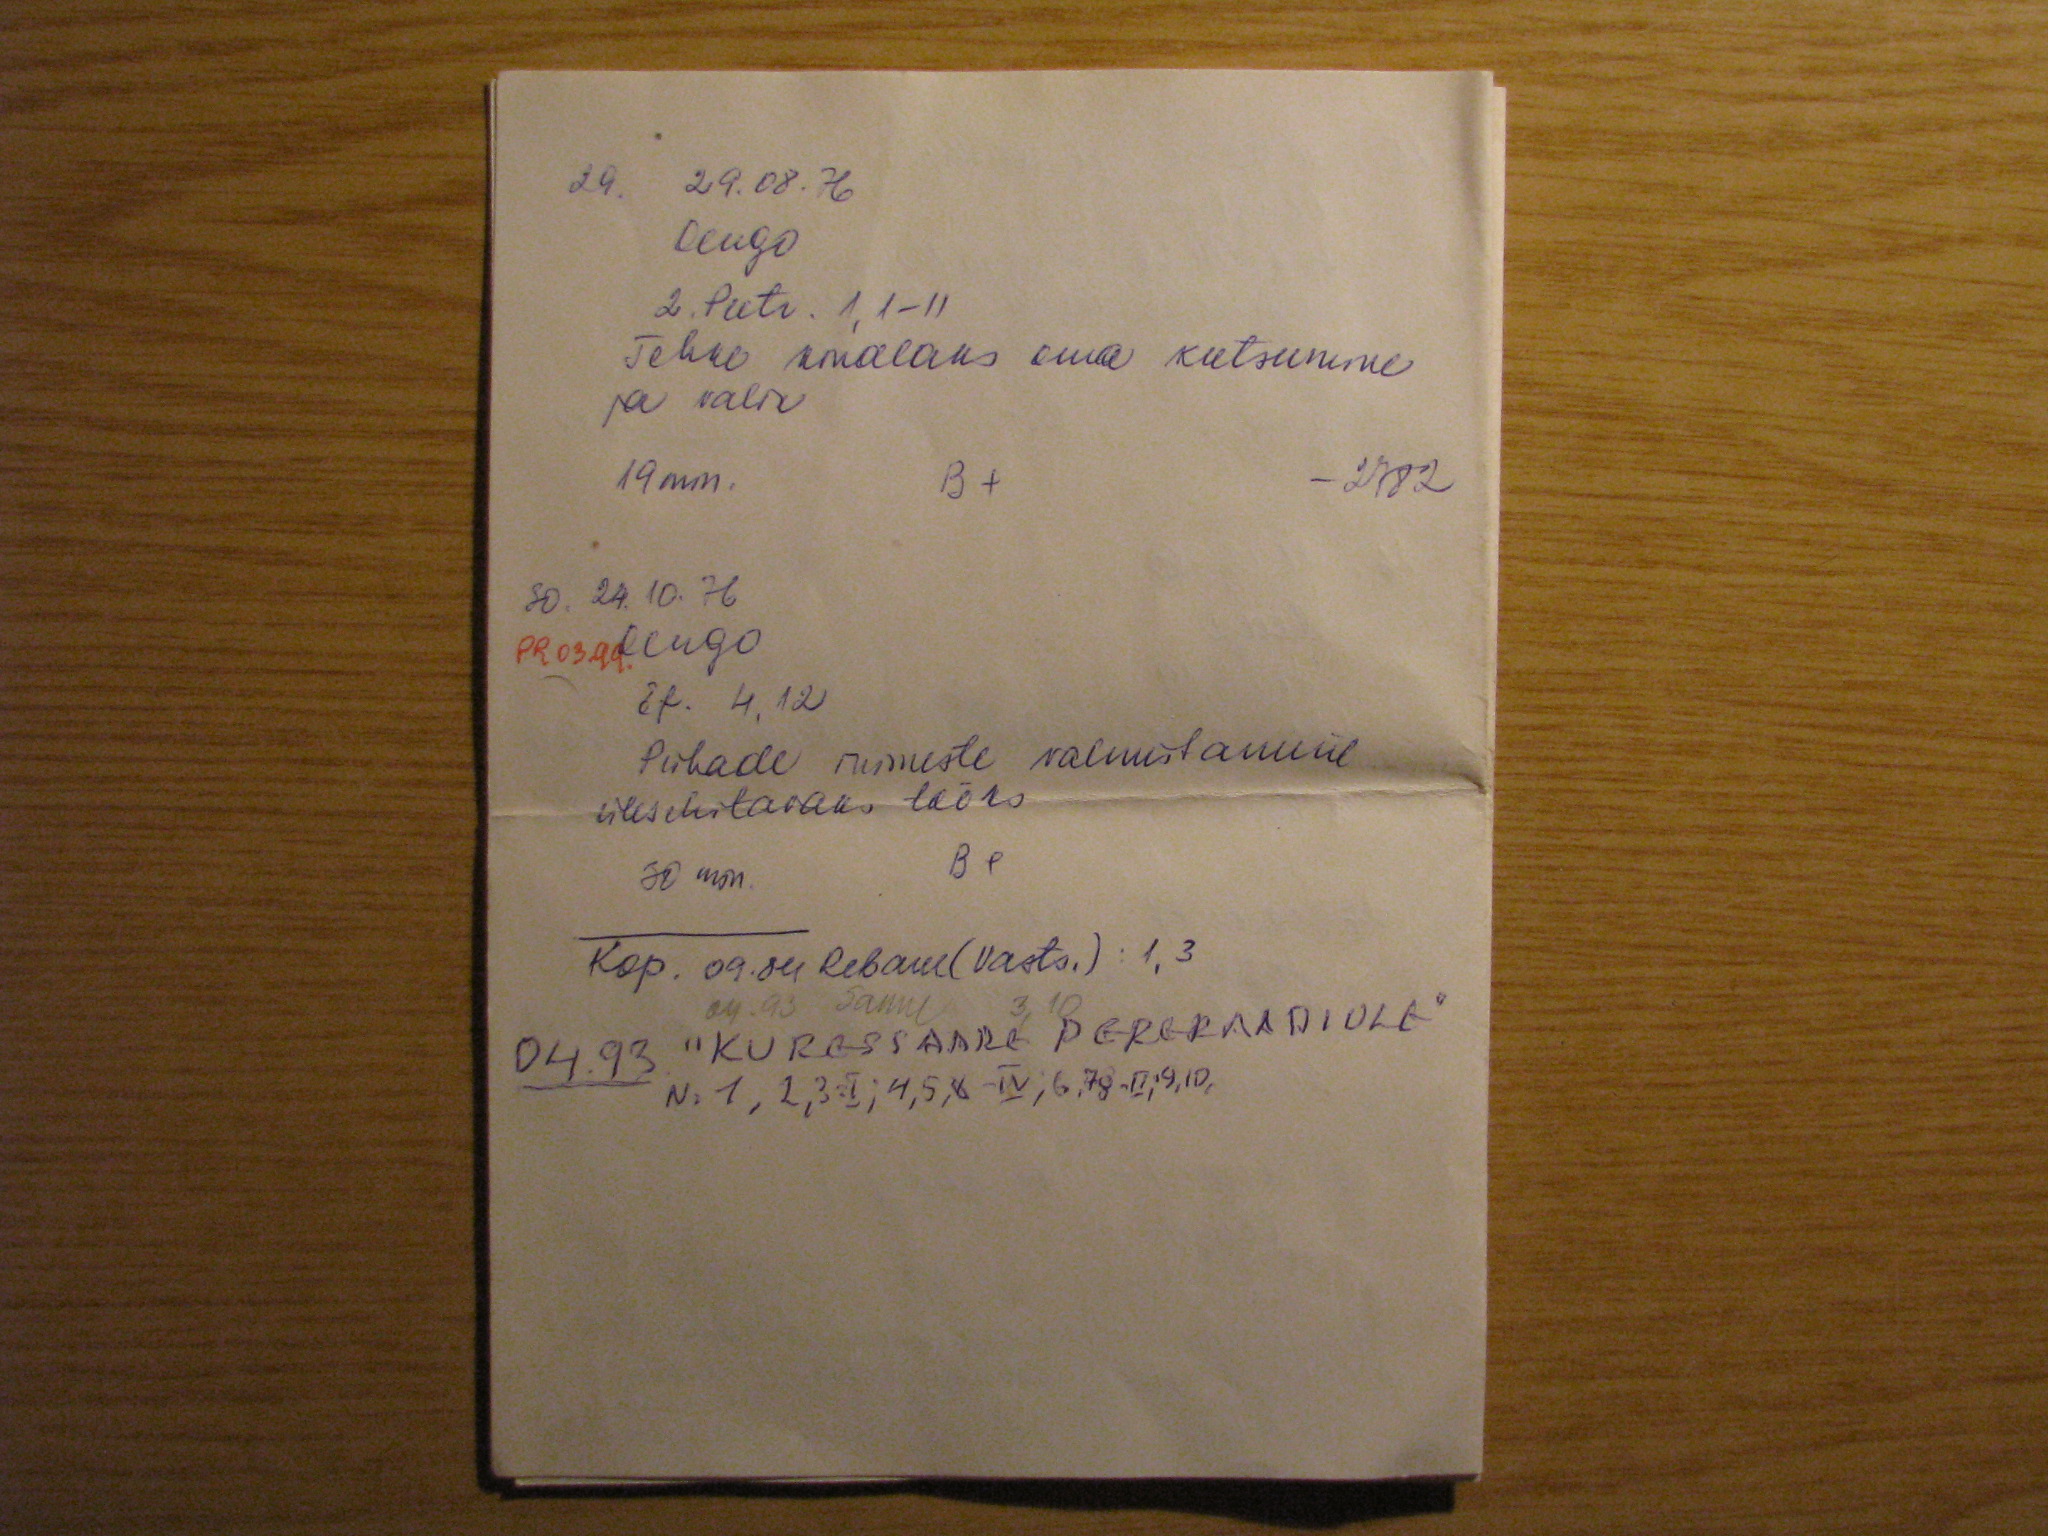 29. 29.08.76
Oengo
2. Peetr. 1, 1-11
Tehke kindlaks oma kutsumine
ja valik
19 min. B+ -2782
30. 24.10.76
PR 03.99. Oengo
Ef. 4, 12
Pühade inimeste valmistamine
ülesehitavaks tööks
30 min. B+
Kop. 09.84 Rebane (Vasts.) : 1, 3
04.93 3, 10
04.93 "KURESSAARE PERERAADIOLE"
N: 1, 2, 3-I; 4, 5, 8-IV; 6, 7, 8-II; 9, 10,